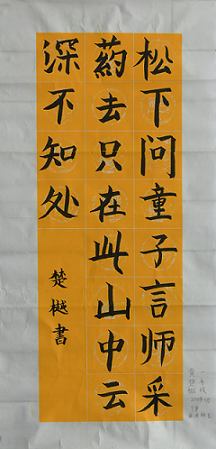 松下问童子言师采
药去只在此山中云
深不知处
楚樾書